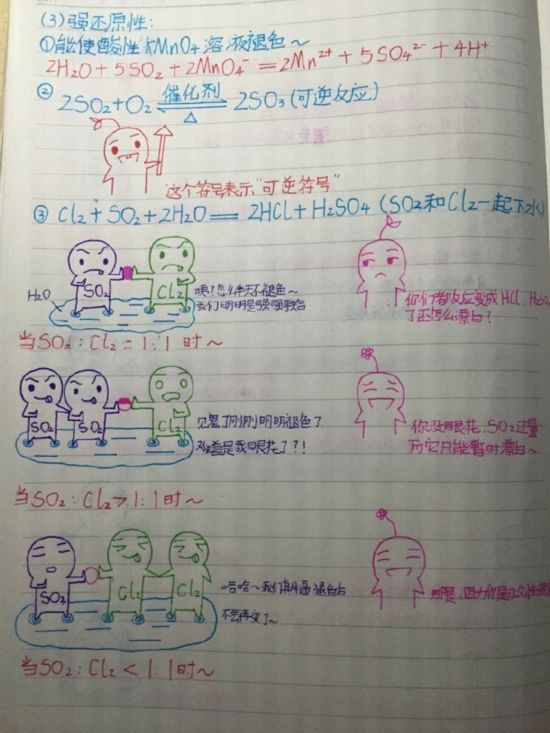 (3)强还原性:
①能使酸性KMnO4溶液褪色～
2H2O+5SO2+2MnO4⁻=2Mn²⁺+5SO4²⁻+4H⁺
② 2SO2+O2 催化剂 ⇌ △ 2SO3(可逆反应)
这个符号表示"可逆符号"
③ Cl2+SO2+2H2O=2HCl+H2SO4(SO2和Cl2一起下水)
SO2 Cl2
H2O
咦?怎么半天不褪色～
我们明明是强强联合
你们都反应变成HCl、H2SO4
了还怎么漂白?
当SO2:Cl2=1:1时～
SO2 SO2 Cl2
见鬼了刚刚明明褪色了
难道是我眼花了?!
你没眼花,SO2过量
所它只能暂时漂白～
当SO2:Cl2>1:1时～
SO2 Cl2 Cl2
哈哈～我们褪色后
不会再变了～
当SO2:Cl2<1:1时～